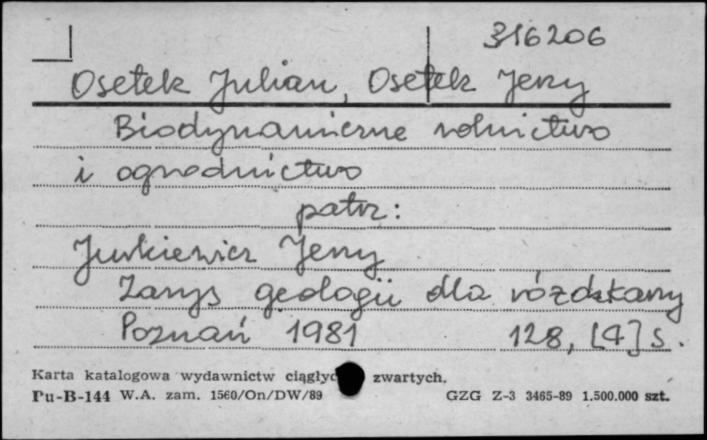 316206
Osetek Julian, Osetek Jerzy
Biodynamiczne rolnictwo
i ogrodnictwo
patrz:
Jurkiewicz Jerzy
Zarys geologii dla różdżkarzy
Poznań 1981 128, [4] s.
Karta katalogowa wydawnictw ciągłyc zwartych.
Pu-B-144 W.A. zam. 1560/On/DW/89 GZG Z-3 3465-89 1.500.000 szt.